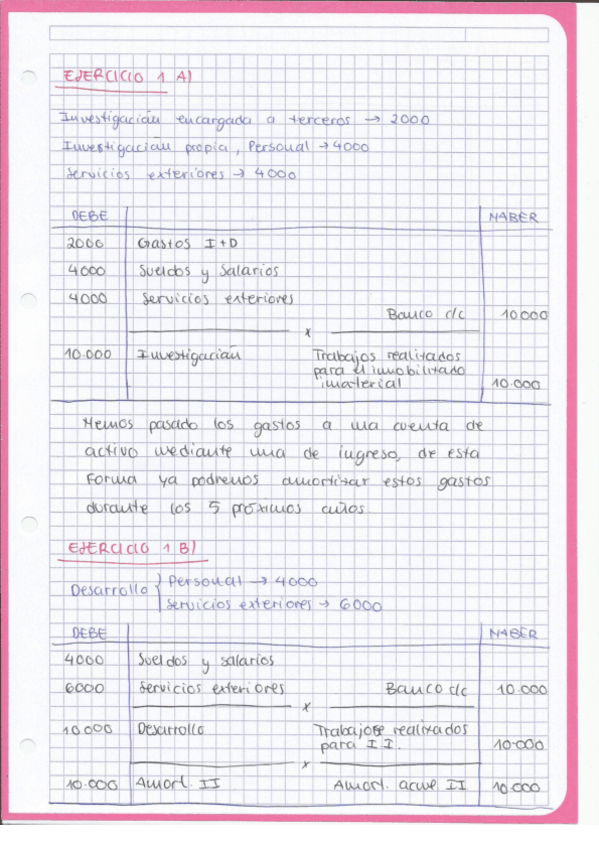 EJERCICIO 1 A)
Investigación encargada a terceros → 2000
Investigación propia, Personal → 4000
Servicios exteriores → 4000
DEBE HABER
2000 Gastos I+D
4000 Sueldos y Salarios
4000 Servicios exteriores
Banco c/c 10000
x
10.000 Investigación Trabajos realizados
para el inmobilizado
imaterial 10.000
Hemos pasado los gastos a una cuenta de
activo mediante una de ingreso, de esta
forma ya podremos amortizar estos gastos
durante los 5 próximos años.
EJERCICIO 1 B)
Desarrollo { Personal → 4000
Servicios exteriores → 6000
DEBE HABER
4000 Sueldos y salarios
6000 Servicios exteriores Banco c/c 10.000
x
10.000 Desarrollo Trabajos realizados
para I I. 10.000
x
10.000 Amort. II Amort. acum II 10.000